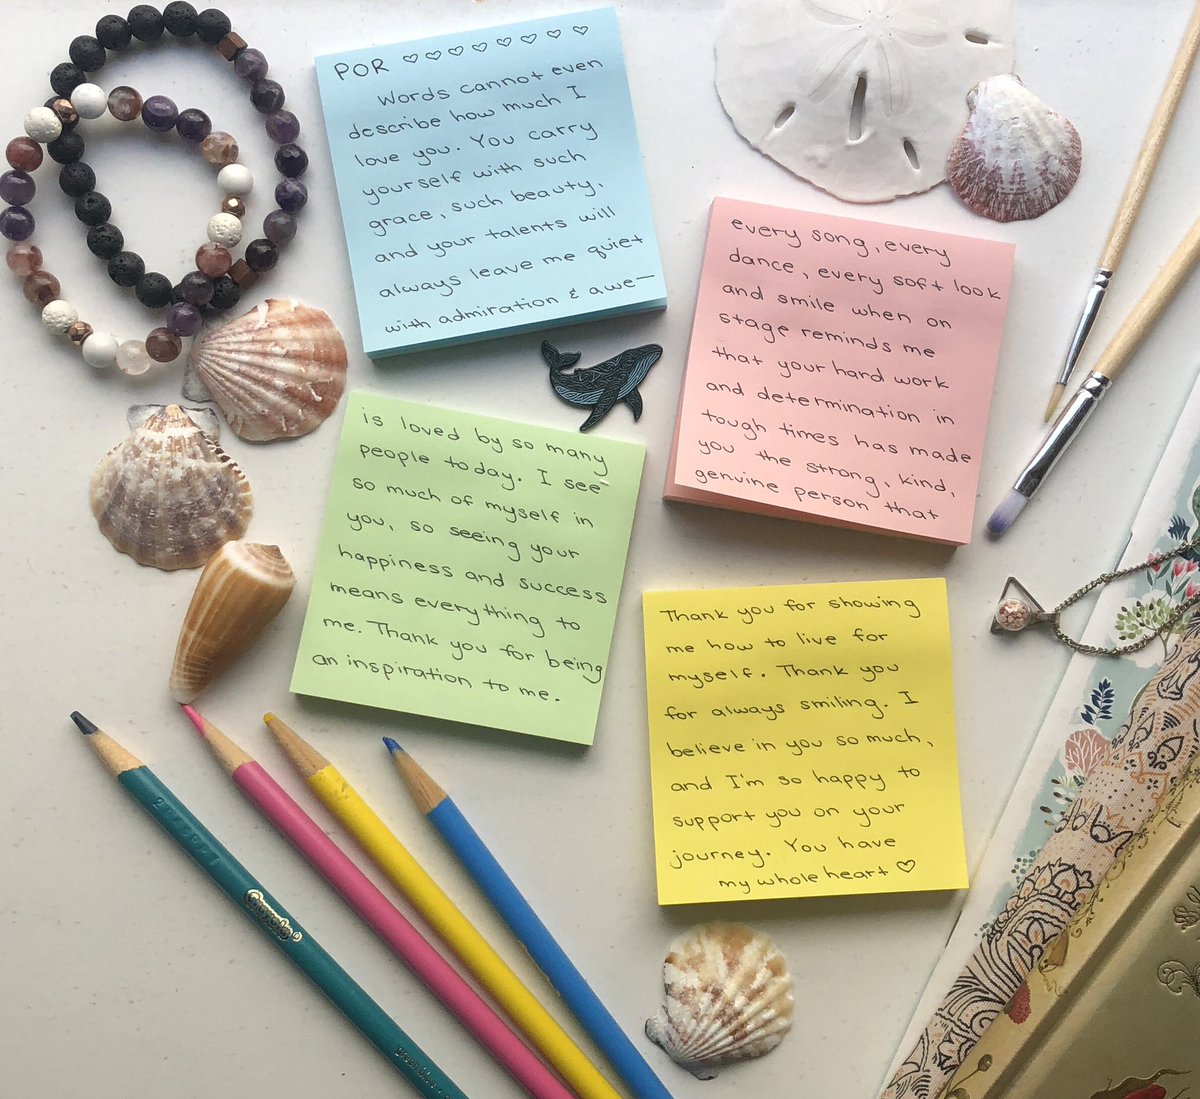 POR ♡♡♡♡♡♡♡♡
Words cannot even
describe how much I
love you. You carry
yourself with such
grace, such beauty,
and your talents will
always leave me quiet
with admiration & awe—
every song, every
dance, every soft look
and smile when on
stage reminds me
that your hard work
and determination in
tough times has made
you the strong, kind,
genuine person that
is loved by so many
people today. I see
so much of myself in
you, so seeing your
happiness and success
means everything to
me. Thank you for being
an inspiration to me.
Thank you for showing
me how to live for
myself. Thank you
for always smiling. I
believe in you so much,
and I'm so happy to
support you on your
journey. You have
my whole heart ♡
Crayola